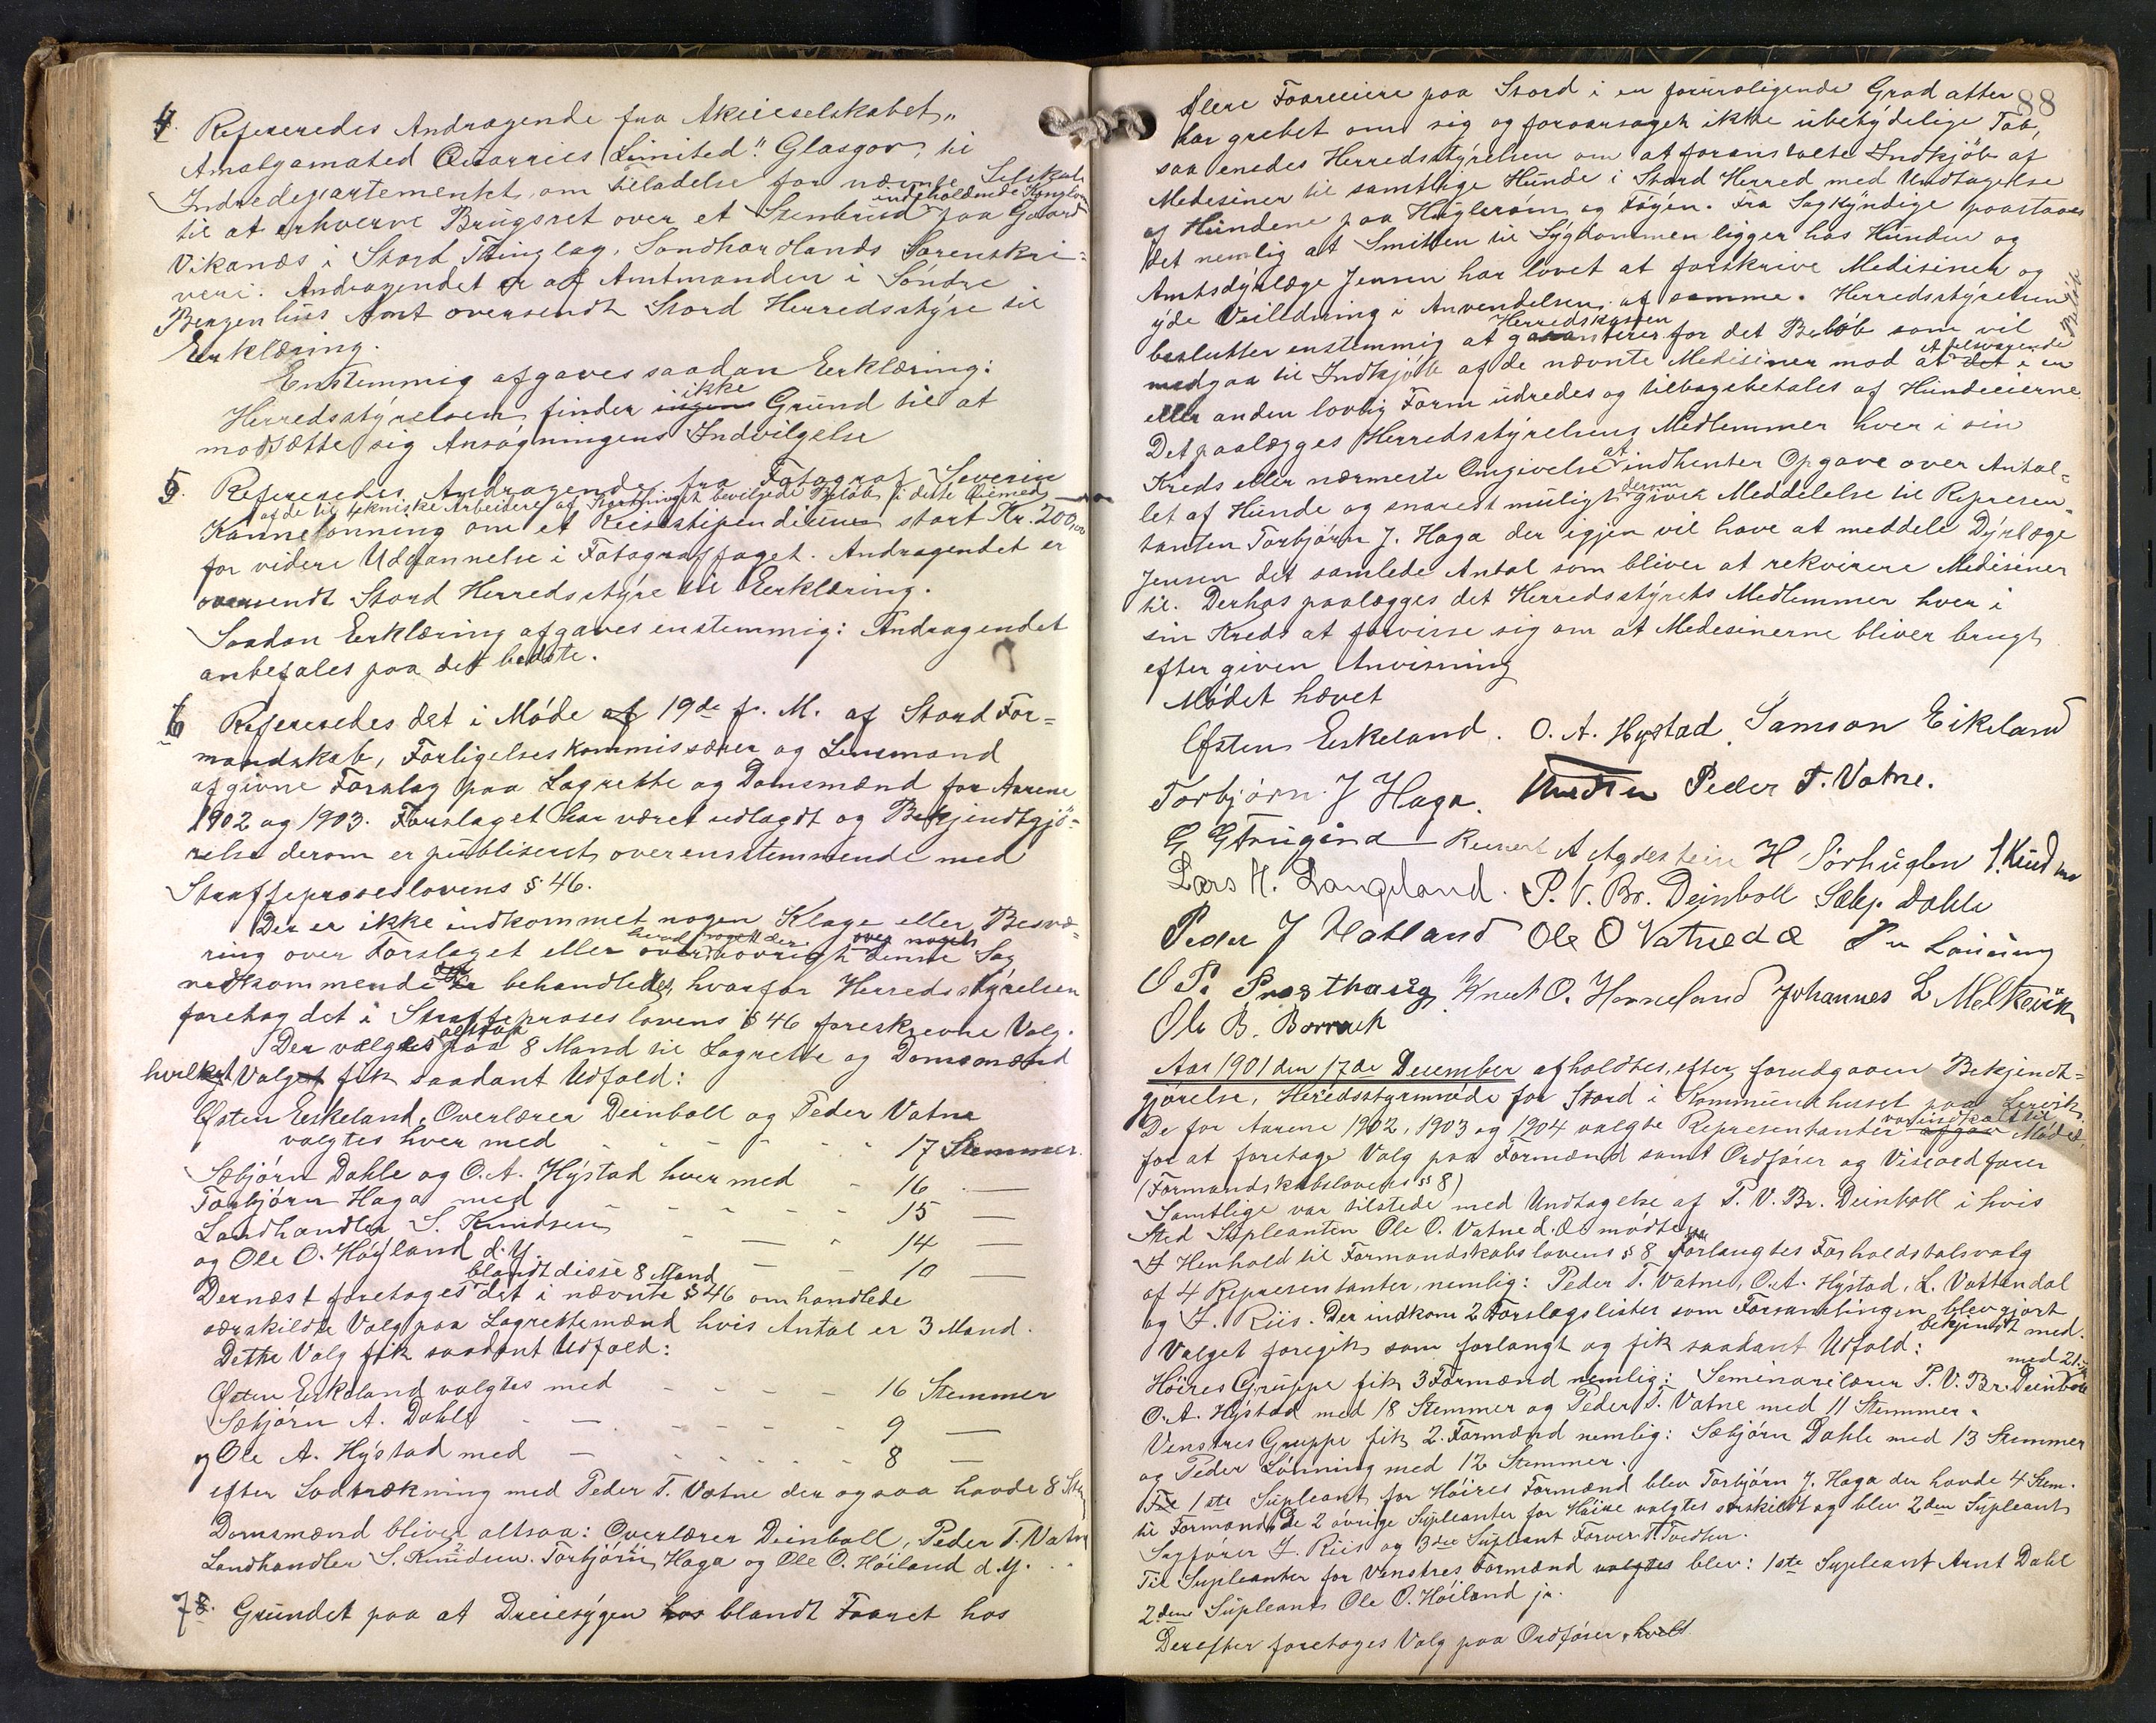 4. Refereredes Andragende fra Aktieselskabet „
Amalgamated Quarries (Limited)" Glasgow, til
Indredepartementet, om tiladelse for nævnte Selskab
til at erhverve Brugsret over et Stenbrud indeholdende paa Gaard
Vikanæs i Stord Thinglag, Søndhordlands Sorenskri=
veri. Andragendet er af Amtmanden i Søndre
Bergenhus Amt oversendt Stord Herredsstyre til
Erklæring.
Enstemmig afgaves saadan Erklæring:
Herredsstyrelsen finder ingen ikke Grund til at
modsætte sig Ansøgningens Indvilgelse
5. Refereredes Andragende fra Fotograf Severin
af de til tekniske Arbeidere af Storthinget bevilgede Beløb i dette Øiemed
Kannelønning om et Reisestipendium stort Kr. 200,00
for videre Uddannelse i Fotograffaget. Andragendet er
oversendt Stord Herredsstyre til Erklæring.
Saadan Erklæring afgaves enstemmig: Andragendet
anbefales paa det bedste.
6 Refereredes det i Møde af 19de f. M. af Stord For=
mandskab, Forligelseskommissærer og Lensmand
afgivne Forslag paa Lagrette og Domsmænd for Aarene
1902 og 1903. Forslaget har været udlagdt og Bekjendtgjø=
relse derom er publiseret overensstemmende med
Straffeproseslovens § 46.
Der er ikke indkommet nogen Klage eller Besvæ=
ring over Forslaget eller over hvad noget der iøvrigt over noget denne Sag
vedkommende behandledes, hvorfor Herredsstyrelsen
foretog det i Straffeproseslovens § 46 foreskrevne Valg.
Der vælgtes altsaa paa 8 Mand til Lagrette og Domsmænd
hvilket Valget fik saadant Udfald:
Østen Eskeland, Overlærer Deinboll og Peder Vatne
valgtes hver med - - - - - 17 Stemmer.
Sæbjørn Dahle og O. A. Hystad hver med - 16 —
Torbjørn Haga med - - - - - 15 —
Landhandler S. Knudsen - — - 14 —
og Ole O. Høyland d. y. — - 10 —
Dernæst foretoges blandt disse 8 Mand det i nævnte § 46 omhandlede
særskildte Valg paa Lagrettemænd hvis Antal er 3 Mand.
Dette Valg fik saadant Udfald:
Østen Eskeland valgtes med - - - - 16 Stemmer
Sæbjørn A. Dahle - — - - - - 9 —
og Ole A. Hystad med — - - - - - 8 —
efter Lodtrækning med Peder T. Vatne der ogsaa havde 8 Stem
Domsmænd bliver altsaa: Overlærer Deinboll, Peder T. Vatne
Landhandler S. Knudsen. Torbjørn Haga og Ole O. Høiland d. y.
7 Grundet paa at Dreiesygen hos blandt Faaret hos
88
flere Faareeiere paa Stord i en foruroligende Grad atter
har grebet om sig og foraarsaget ikke ubetydelige Tab,
saa enedes Herredsstyrelsen om at foranstalte Indkjøb af
Medesiner til samtlige Hunde i Stord Herred med Undtagelse
af Hundene paa Huglerøm og Føyen. Fra Sagkyndige paastaaes
det nemlig at Smitten til Sygdommen ligger hos Hunden og
Amtsdyrlæge Jensen har lovet at forskrive Medisiner og
yde Veiledning i Anvendelsen af samme. Herredsstyrelsen
beslutter enstemmig at Herredskassen garanterer for det Beløb som vil
medgaa til Indkjøb af de nævnte Medisiner mod at det tilsvarende Beløb i en
eller anden lovlig Form udredes og tilbagebetales af Hundeeierne
Det paalægges Herredsstyrelsens Medlemmer hver i sin
Kreds eller nærmeste Omgivelse at indhenter Opgave over Antal=
let af Hunde og snarest muligt derom give Meddelelse til Represen=
tanten Torbjørn J. Haga der igjen vil have at meddele Dyrlæge
Jensen det samlede Antal som bliver at rekvirere Medisiner
til. Derhos paalægges det Herredsstyrets Medlemmer hver i
sin Kreds at forvisse sig om at Medesinerne bliver brugt
efter given Anvisning
Mødet hævet
Østen Eskeland. O. A. Hystad. Samson Eikeland
Torbjørn J Haga. Peder T. Vatne.
Reinert A Agdestein H Sørhuglen S. Knudsen
Lars H. Langeland. P. V. Br. Deinboll Sæbj. Dahle
Peder J Hatland Ole O Vatne d æ
O P. Presthaug Knut O. Horneland Johannes L Melkevik
Ole B. Borrevik
Aar 1901 den 17de December afholdtes, efter forudgaaen Bekjendt=
gjørelse, Herredsstyrmøde for Stord i Kommunehuset paa Lervik
De for Aarene 1902, 1903 og 1904 valgte Representanter var indkaldt til afgav Mødet
for at foretage Valg paa Formænd samt Ordfører og Viseordfører
(Formandskabslovens §§ 8)
Samtlige var tilstede med Undtagelse af P. V. Br. Deinboll i hvis
Sted Supleanten Ole O. Vatne d. Æ mødte
I Henhold til Formandskabslovens § 8 forlangtes Forholdstalsvalg
af 4 Representanter, nemlig: Peder T. Vatne, O. A. Hystad, L. Vattendal
og F. Riis. Der indkom 2 Forslagslister som Forsamlingen blev gjort
bekjendt med.
Valget foregik som forlangt og fik saadant Udfald:
Høires Gruppe fik 3 Formænd nemlig: Seminarilærer P. V. Br. Deinboll med 21,
O. A. Hystad med 18 Stemmer og Peder T. Vatne med 11 Stemmer.
Venstres Gruppe fik 2 Formænd nemlig: Sæbjørn Dahle med 13 Stemmer
og Peder Lønning med 12 Stemmer.
Til 1ste Supleant for Høires Formænd blev Torbjørn J. Haga der havde 4 Stem.
til Formand, De 2 øvrige Supleanter for Høire valgtes særskildt og blev 2den Supleant
Sagfører F. Riis og 3die Supleant Farver H Tvedten.
Til Supleanter for Venstres Formænd valgtes blev: 1ste Supleant Arnt Dahl
2den Supleant Ole O. Høiland jr.
Derefter foretages Valg paa Ordfører, hvilt